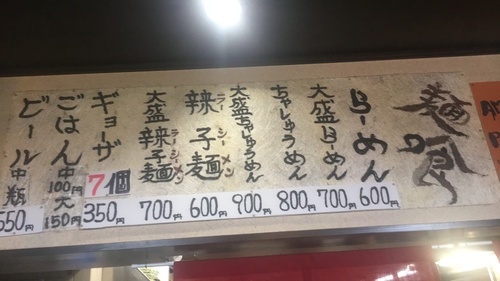 らーめん 600円
大盛らーめん 700円
ちゃしゅうめん 800円
大盛ちゃしゅうめん 900円
辣子麺 ラーシーメン 600円
大盛辣子麺 ラーシーメン 700円
ギョーザ 7個 350円
ごはん 中100円 大150円
ビール中瓶 550円